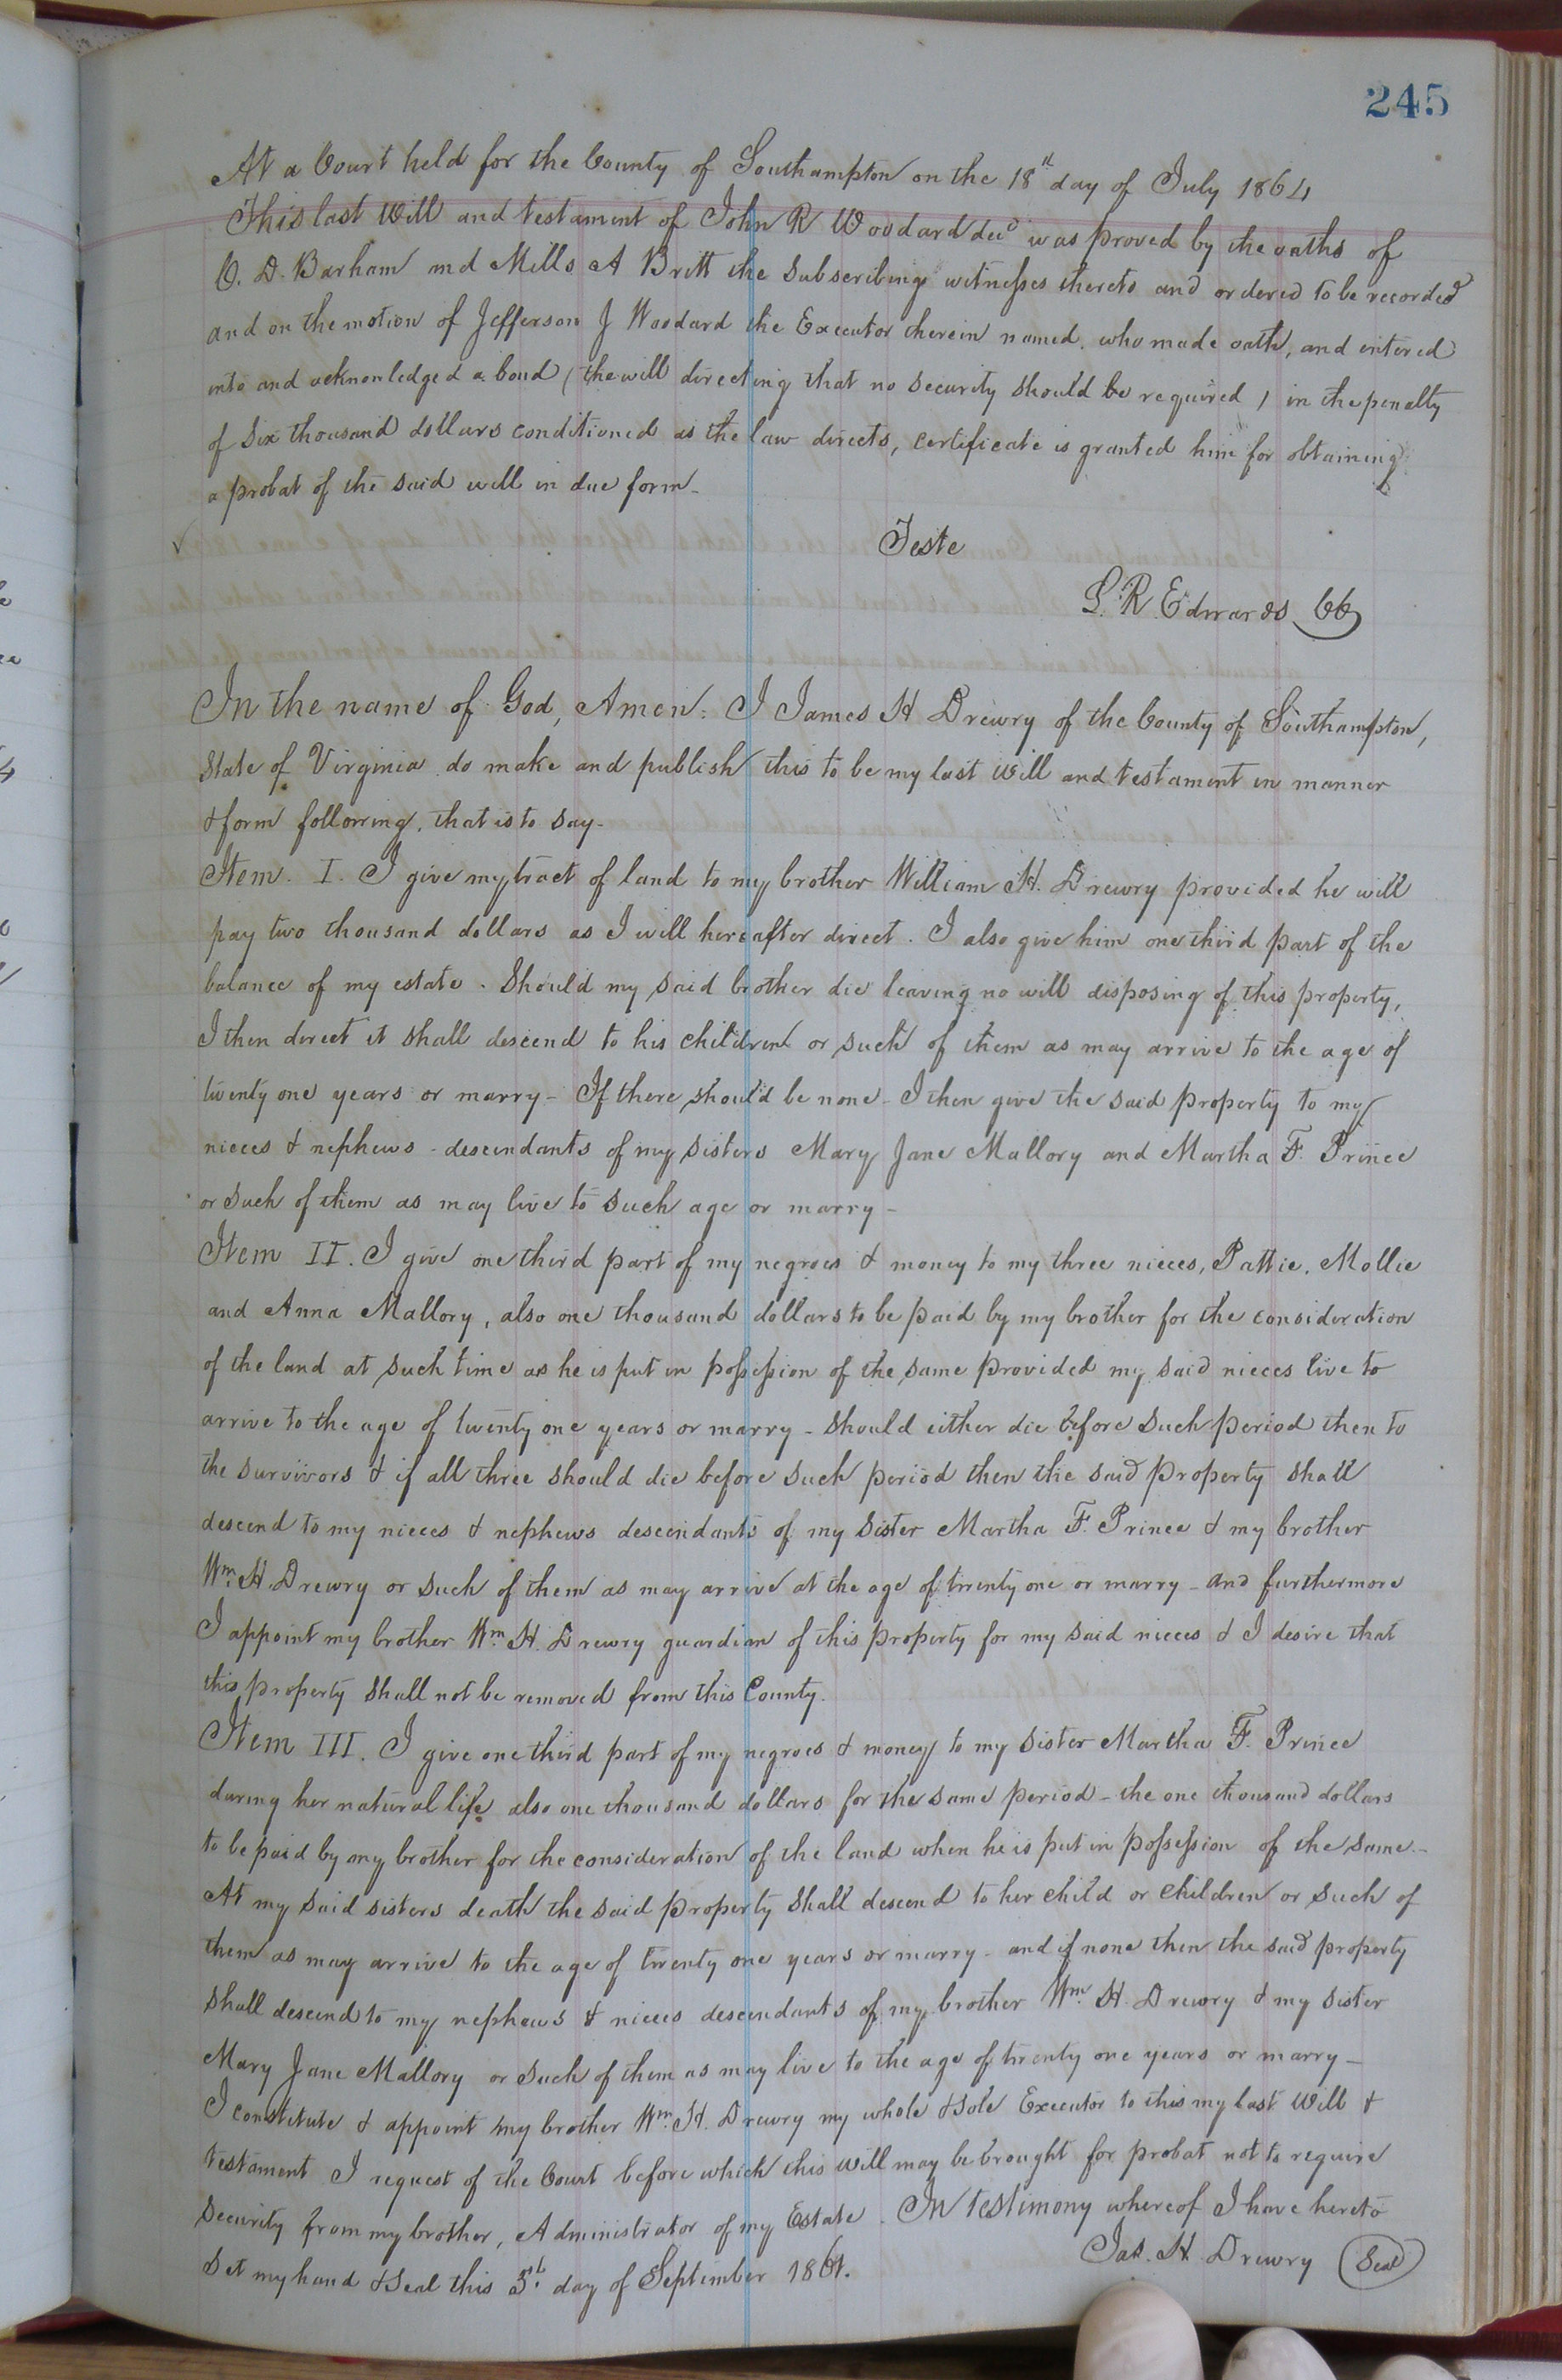 245
At a Court held for the County of Southampton on the 18th day of July 1864
This last Will and testament of John R Woodard decd was proved by the oaths of
C. D. Barham and Mills A Britt the Subscribing witnesses thereto and ordered to be recorded
and on the motion of Jefferson J Woodard the Executor therein named. who made oath, and entered
into and acknowledged a bond (the will directing that no security should be required) in the penalty
of Six thousand dollars conditioned as the law directs, certificate is granted him for obtaining
a probat of the said will in due form-
Teste
L. R. Edwards CC
In the name of God, Amen. I James H Drewry of the County of Southampton,
State of Virginia do make and publish this to be my last Will and testament in manner
& form following. that is to say-
Item. I. I give my tract of land to my brother William H. Drewry provided he will
pay two thousand dollars as I will hereafter direct. I also give him one third part of the
balance of my estate. Should my said brother die leaving no will disposing of this property,
I then direct it shall descend to his children or such of them as may arrive to the age of
twenty one years or marry- If there should be none- I then give the said property to my
nieces & nephews- descendants of my sisters Mary Jane Mallory and Martha F. Prince
or such of them as may live to such age or marry-
Item II. I give one third part of my negroes & money to my three nieces, Pattie. Mollie
and Anna Mallory, also one thousand dollars to be paid by my brother for the consideration
of the land at such time as he is put in possession of the same provided my said nieces live to
arrive to the age of twenty one years or marry- should either die before such period then to
the survivors & if all three should die before such period then the said property shall
descend to my nieces & nephews descendants of my Sister Martha F. Prince & my brother
Wm. H. Drewry or such of them as may arrive at the age of twenty one or marry- and furthermore
I appoint my brother Wm. H. Drewry guardian of this property for my said nieces & I desire that
this property shall not be removed from this County.
Item III. I give one third part of my negroes & money to my Sister Martha F. Prince
during her natural life also one thousand dollars for the same period- the one thousand dollars
to be paid by my brother for the consideration of the land when he is put in possession of the same-
At my said sisters death the said property shall descend to her child or children or such of
them as may arrive to the age of twenty one years or marry- and if none then the said property
shall descend to my nephews & nieces descendants of my brother Wm. H. Drewry & my sister
Mary Jane Mallory or such of them as may live to the age of twenty one years or marry-
I constitute & appoint my brother Wm. H. Drewry my whole & sole Executor to this my last Will &
testament I request of the Court before which this will may be brought for probat not to require
security from my brother, Administrator of my Estate. In testimony whereof I have hereto
Set my hand & Seal this 5th. day of September 1861.
Jas. H. Drewry Seal